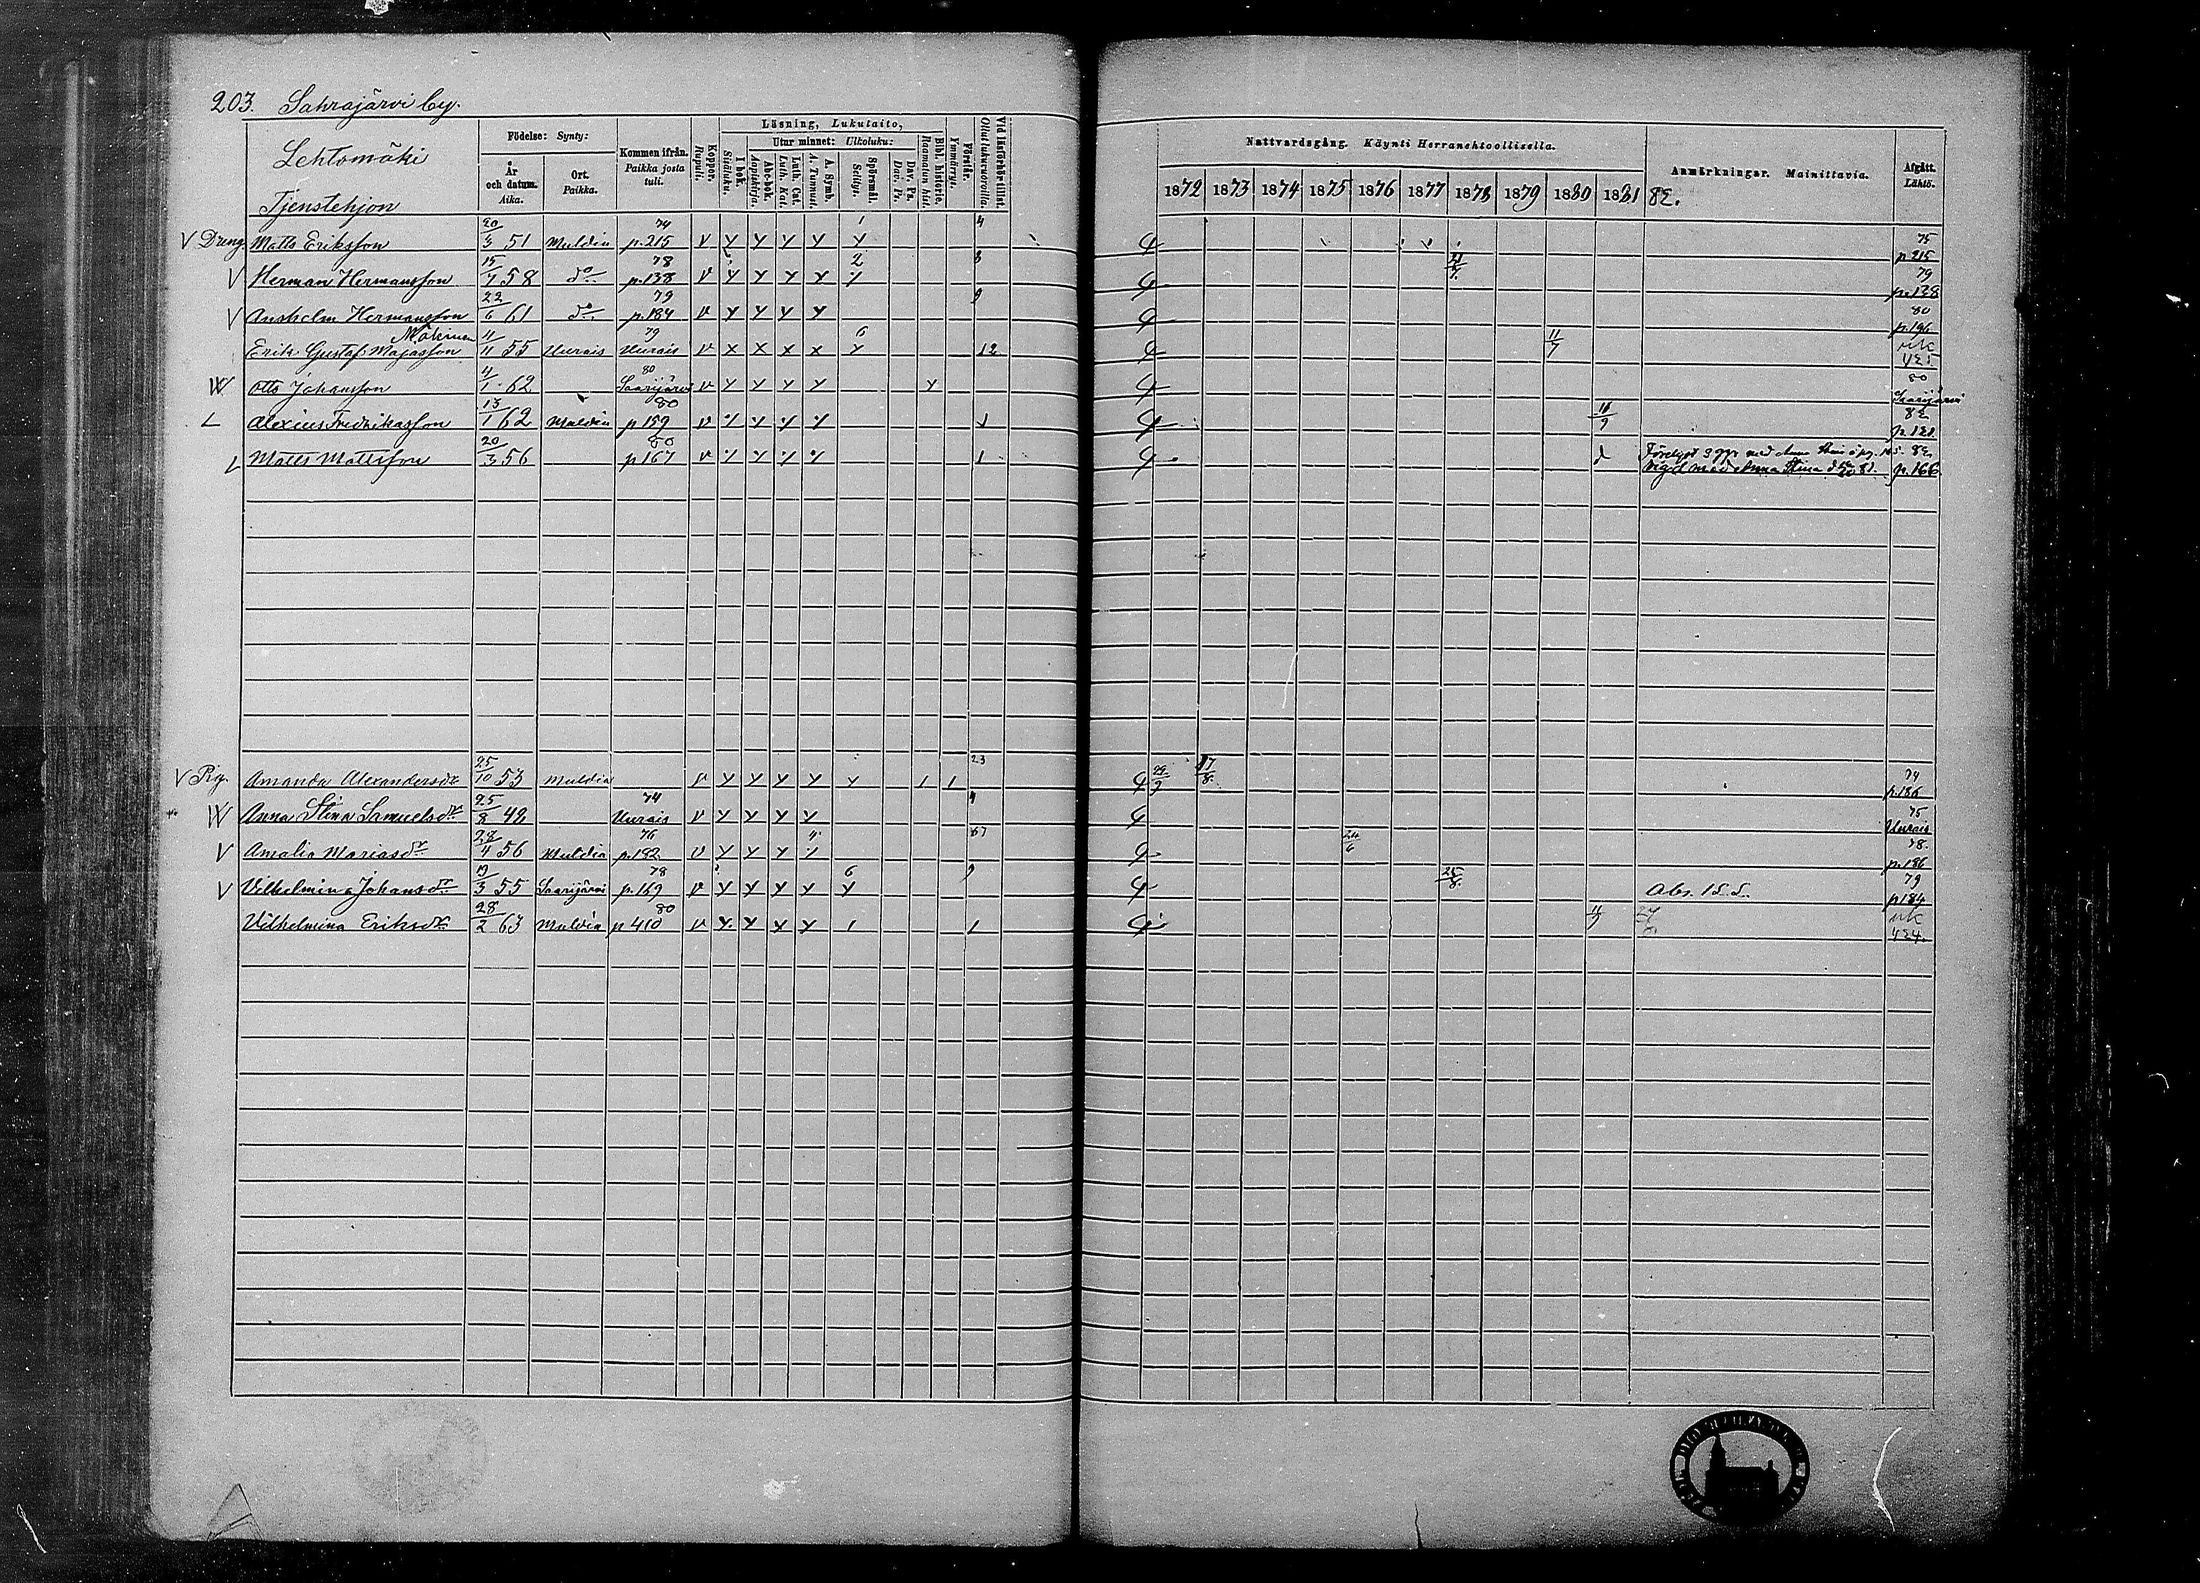 203. Sahrajärvi by.
Lehtomäki
Tjenstehjon
Födelse: Synty:
År och datum. Aika.
Ort. Paikka.
Kommen ifrån. Paikka josta tuli.
Koppor. Rupuli.
Läsning, Lukutaito,
I bok. Sisäluku.
Utur minnet: Ulkoluku:
Abc-bok. Aapiskirja.
Luth. Cat. Luth. Kat.
A. Symb. A. Tunnust.
Spörsmål. Selitys.
Dav. Ps. Dav. Ps.
Bibl. historie. Raamatun hist.
Förstår. Ymmärrys.
Vid läsförhör tillst. Ollut lukuvuorolla.
Nattvardsgång. Käynti Herranehtoollisella.
1872 1873 1874 1875 1876 1877 1878 1879 1880 1881 82.
Anmärkningar. Mainittavia.
Afgått. Lähtö.
V Dreng Matts Eriksson 20/3 51 Muldia 74 p. 215 V Y Y Y Y Y 1 4 75 p. 215
V Herman Hermansson 15/7 58 do 78 p. 138 V Y Y Y Y 2 3 79 p. 138
V Anshelm Hermansson 22/6 61 do 79 p. 184 V Y Y Y Y 9 80 p. 196
Mäkinen
Erik Gustaf Majasson 11/11 55 Uurais 79 Uurais V x x x x 6 12 11/7 uk 425
W Otto Johansson 4/1 62 80 Saarijärvi V Y Y Y Y Y 80 Saarijärvi
L Alexius Fredrikasson 13/1 62 Muldia 80 p 159 V 1 82
L Matts Mattsson 20/3 56 80 p 167 V 1 82 p. 166
Vigd med Anna Stina
V Pig. Amanda Alexandersdr 25/10 53 Muldia V Y Y Y Y Y 1 1 23 17/8 74 p. 186
W Anna Stina Samuelsdr 25/8 49 74 Uurais V Y Y Y Y 4 75 Uurais
V Amalia Mariasdr 28/4 56 Muldia 76 p. 182 V Y Y Y 67 24/6 78 p. 186
V Vilhelmina Johansdr 19/3 55 Saarijärvi 78 p. 169 V Y Y Y Y 6 Y 9 25/8 Abs. 79 p 184
Vilhelmina Eriksdr 28/2 63 Muldia 80 p 410 V Y Y Y Y 1 1 uk 424.